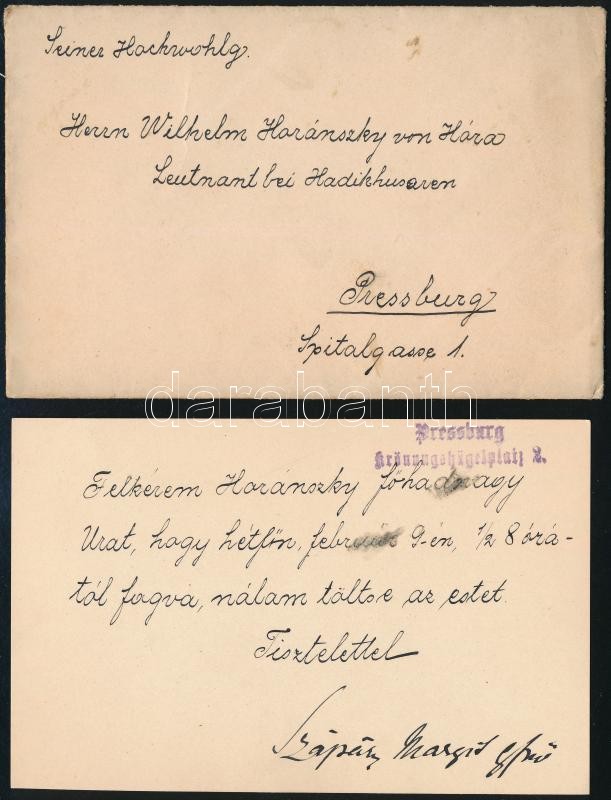 Seiner Hochwohlg.
Herrn Wilhelm Horánszky von Hóra
Leutnant bei Hadikhusaren
Pressburg
Spitalgasse 1.
darabanth
Pressburg
Krönungshügelplatz 2.
Felkérem Horánszky főhadnagy
Urat, hogy hétfőn, február 9-én, 1/2 8 órá-
tól fogva, nálam töltse az estet.
Tisztelettel
Szápáry Margit grfnő